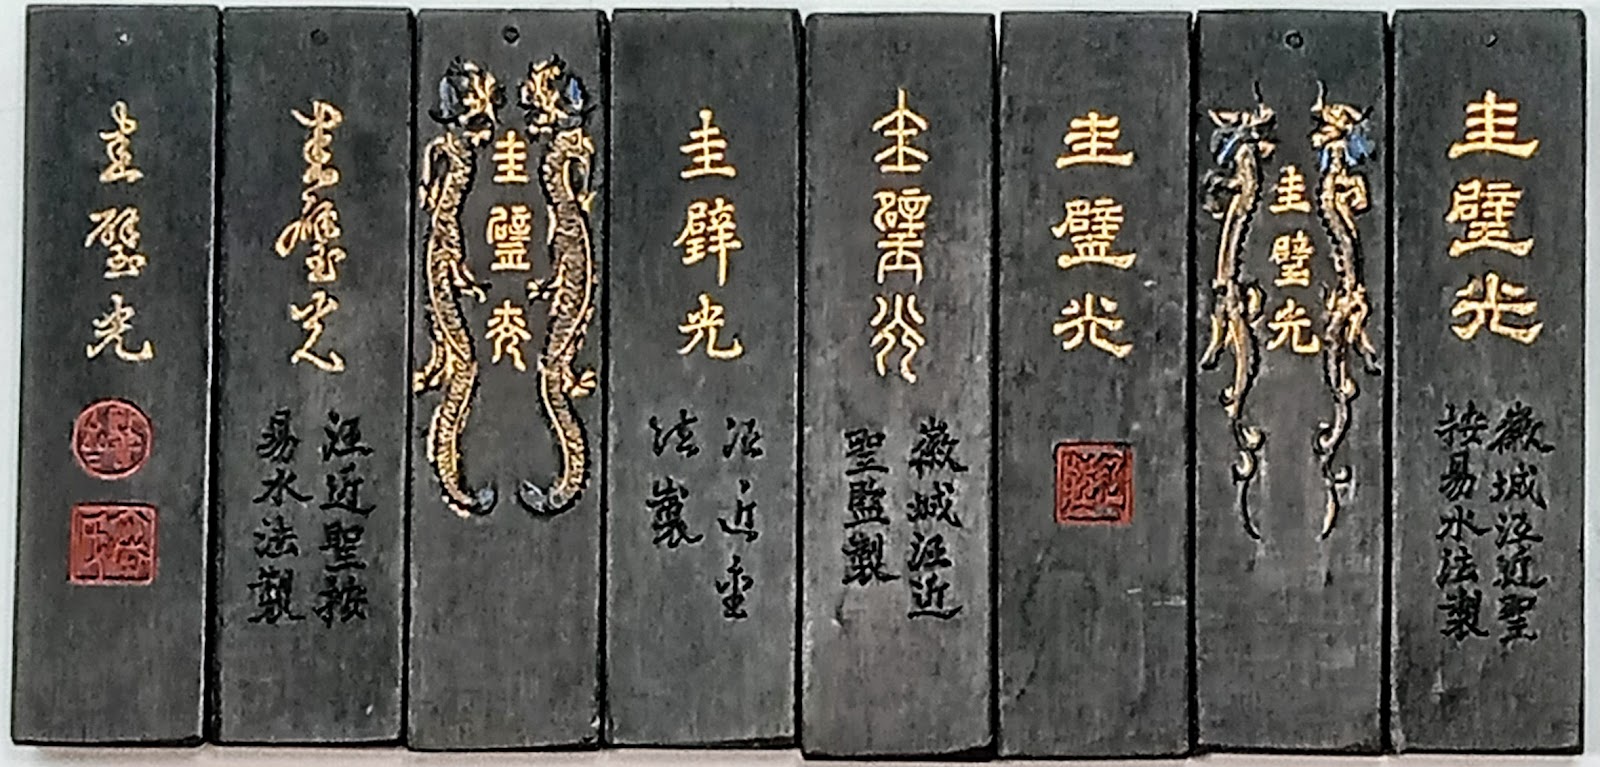 圭璧光
徽城汪近聖
按易水法製
圭璧光
圭璧光
圭璧光
徽城汪近
聖監製
圭璧光
汪近聖
法製
圭璧光
圭璧光
汪近聖按
易水法製
圭璧光